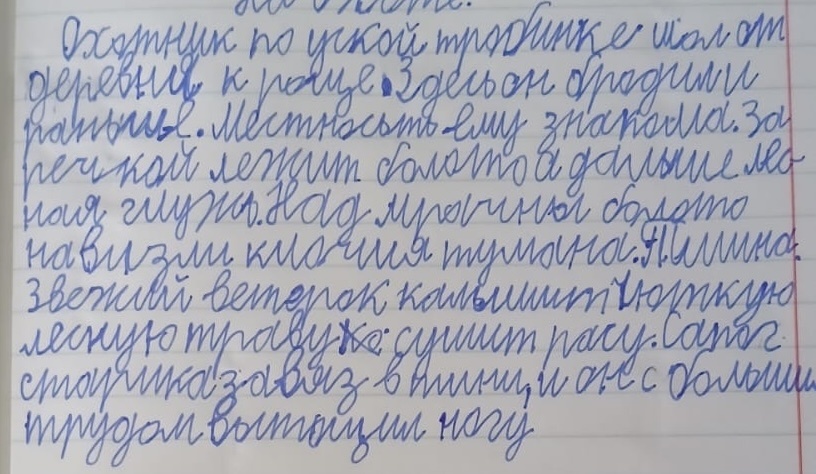 на охоте.
Охотник по уской тробинке шол от
деревни к роще. Здесь он бродили
раньше. Местносьть ему знакома. За
речкой лежит болото а дальше лес
ная глушь. Над мрачны болото
нависли клочия тумана. Тишина.
Звежий ветерок калышит чюткую
лесную траву и сушит расу. Сапог
старика завяз в тини, и он с больши
трудом вытащил ногу